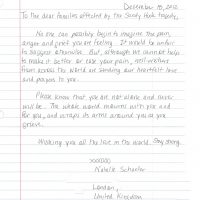 December 18, 2012
To the dear families affected by the Sandy Hook tragedy,
No one can possibly begin to imagine the pain,
anger and grief you are feeling. It would be unfair
to suggest otherwise. But, although we cannot help
to make it better or ease your pain, well-wishers
from across the world are sending our heartfelt love
and prayers to you.
Please know that you are not alone and never
will be. The whole world mourns with you and
for you, and wraps its arms around you as you
grieve.
Wishing you all the love in the world. Stay strong.
xxxxxxx
Natalie
London,
United Kingdom